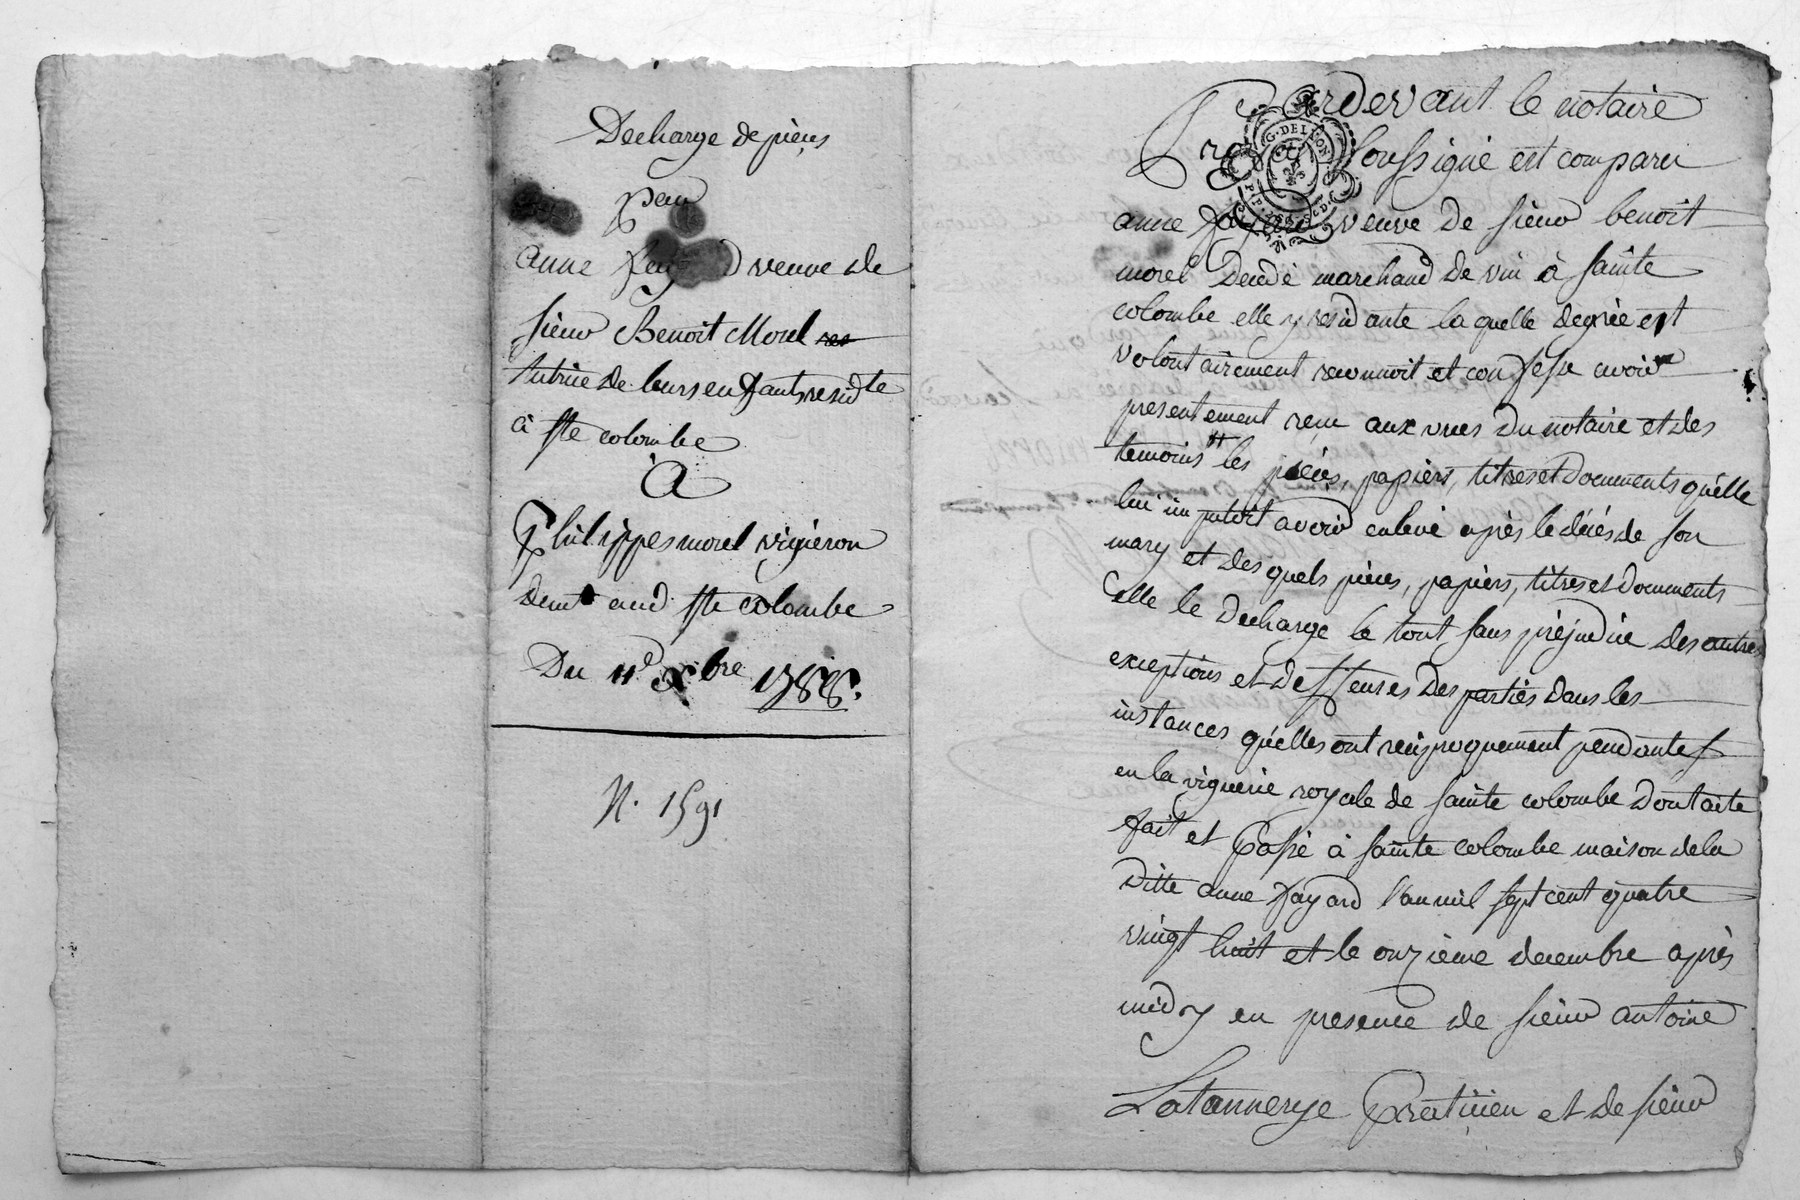 Decharge de pieces
par
anne fayard veuve de
sieur Benoit Morel res
tutrice de leurs enfants residte
à ste colombe
A
Philippes morel vigneron
demt aud ste colombe
Du 11e Xbre 1788.
N. 1591
Pardevant le notaire
royal soussigné est comparu
G. DE LION
anne fayard veuve de sieur benoit
morel decedé marchand de vin à sainte
colombe elle y residante laquelle degrée et
volontairement reconnoit et confesse avoir
presentement reçu aux vues du notaire et des
temoins les pieces, papiers, titres et documents qu'elle
lui imputoit avoir enlevé après le décés de son
mary et desquels pieces, papiers, titres et documents
elle le decharge le tout sans préjudice des autres
exceptions et deffenses des parties dans les
instances qu'elles ont reciproquement pendantes
en la viguerie royale de sainte colombe dont acte
fait et passé à sainte colombe maison de la
ditte anne fayard l'an mil sept cent quatre
vingt huit et le onzieme decembre après
midy en presence de sieur antoine
Latannerye praticien et de sieur